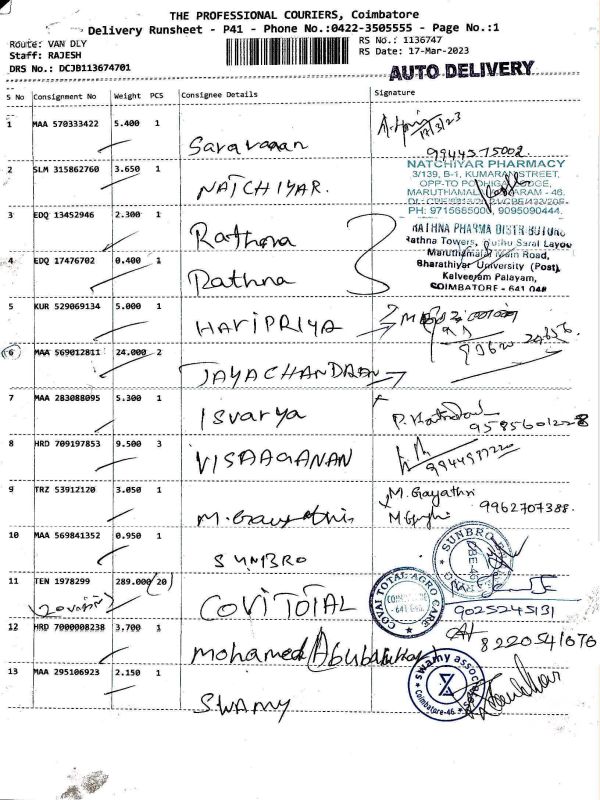 THE PROFESSIONAL COURIERS, Coimbatore
Delivery Runsheet - P41 - Phone No.:0422-3505555 - Page No.:1
Route: VAN DLY
RS No.: 1136747
Staff: RAJESH
RS Date: 17-Mar-2023
DRS No.: DCJB113674701
AUTO DELIVERY
S No Consignment No Weight PCS Consignee Details Signature
1 MAA 570333422 5.400 1 Saravanan
17/3/23
9944575002
2 SLM 315862760 3.650 1 NATCHIYAR.
NATCHIYAR PHARMACY
3/139, B-1, KUMARAN STREET,
OPP-TO
MARUTHAMALAI - 46.
PH: 9715685000, 9095090444.
3 EDQ 13452946 2.300 1 Rathna
RATHNA PHARMA DISTRIBUTORS
Rathna Towers, Guthu Saral Layou
Maruthamalai Main Road,
4 EDQ 17476702 0.400 1 Rathna
Bharathiyar University (Post),
Kalveeram Palayam,
COIMBATORE - 641 046
5 KUR 529069134 5.000 1 HARIPRIYA
6 MAA 569012811 24.000 2 JAYACHANDRAN
7 MAA 283088095 5.300 1 Isvarya
9585601228
8 HRD 709197853 9.500 3 VISAAGANAN
9 TRZ 53912120 3.050 1 M. Gayathri
M. Gayathri
9962707388.
10 MAA 569841352 0.950 1 SUNBRO
SUNBRO
11 TEN 1978299 289.000 (20) COVI TOTAL
COVAI TOTAL AGRO CARE
COIMBATORE
9025245131
12 HRD 7000008238 3.700 1 Mohamed Abubakkar
8220541070
13 MAA 295106923 2.150 1 SWAMY
swamy associates
Coimbatore-46.